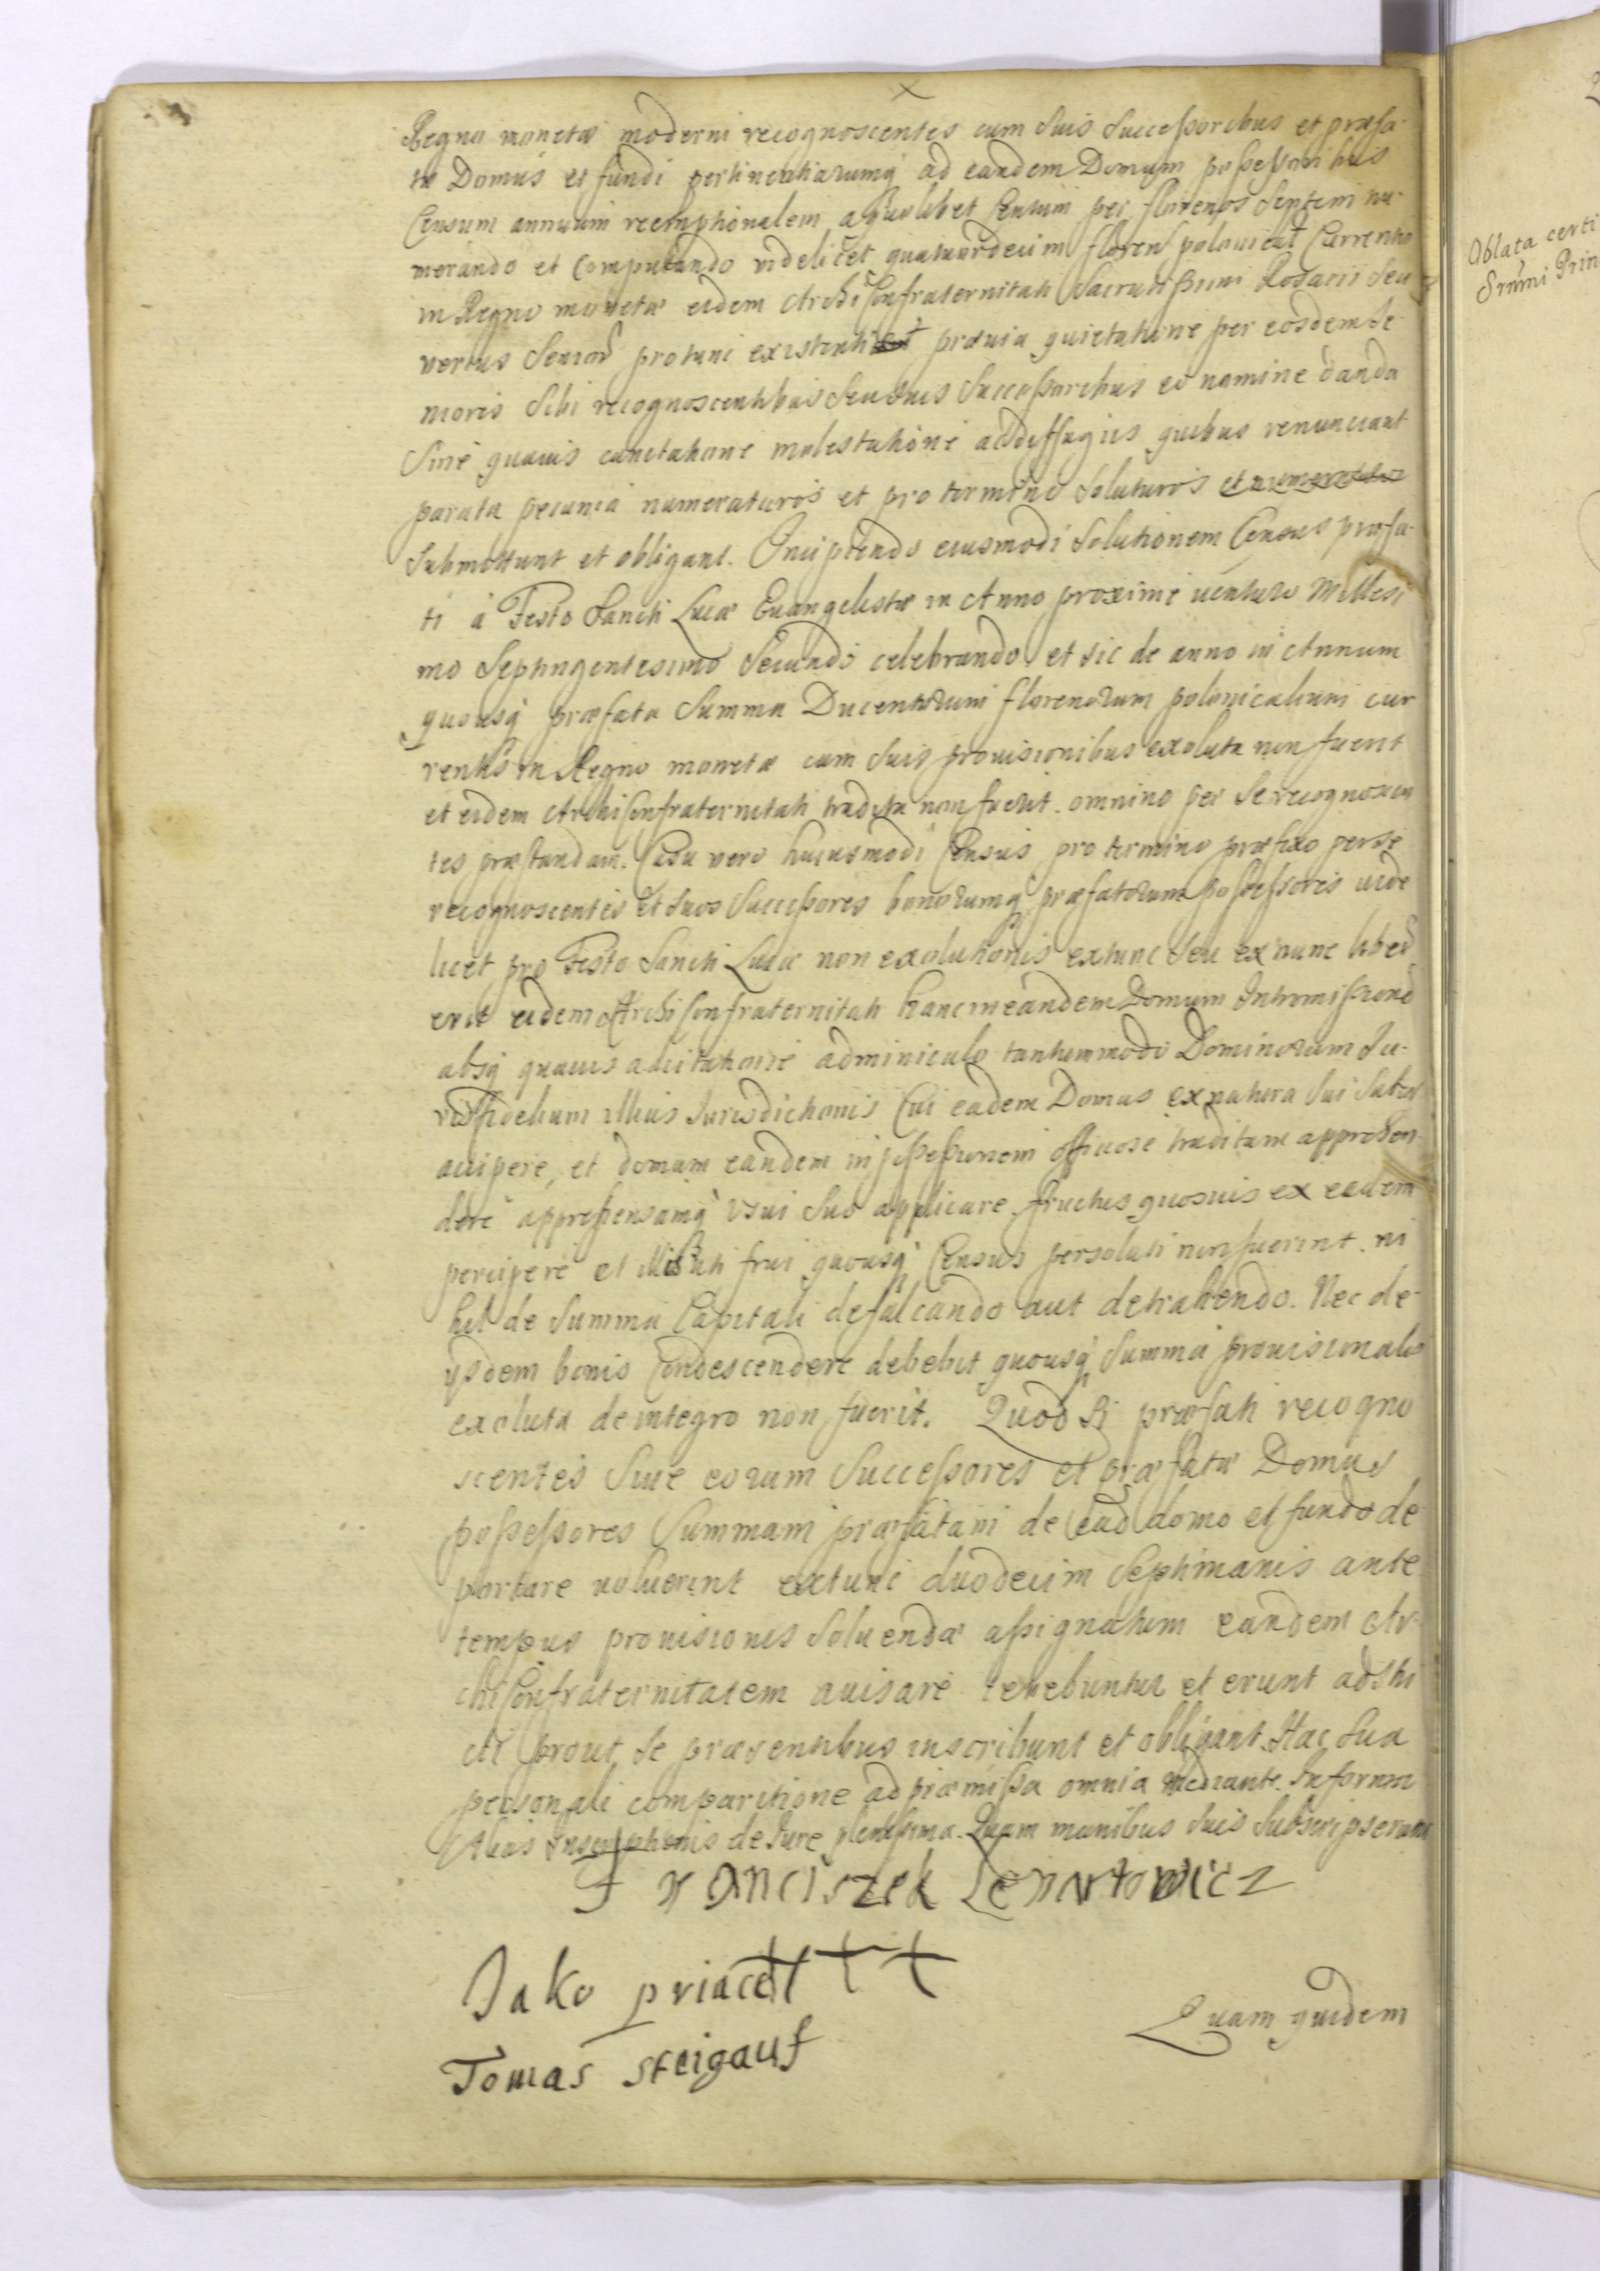 Regno monetæ moderni recognoscentes cum suis successoribus et præfa-
tæ Domus et fundi pertinentiarumq ad eandem Domum possessoribus
Censum annuum reemptionalem a quolibet Centum per florenos septem nu-
merando et computando videlicet quatuordecim floren polonical Currentis
in Regno monetæ eidem ArchiConfraternitati Sacratissimi Rosarii seu
verius Senior protunc existenti prævia quietatione per eosdem Se-
niores sibi recognoscentibus seu suis successoribus eo nomine danda
Sine quavis cunctatione molestatione ac diffugiis quibus renunciant
parata pecunia numeraturos et pro termino soluturos
submittunt et obligant. Incipiendo eiusmodi solutionem Census præfa-
ti à Festo Sancti Lucæ Evangelistæ in Anno proxime venturo Millesi
mo Septingentesimo Secundo celebrando, et sic de anno in Annum
quousq præfata Summa Ducentorum florenorum polonicalium cur
rentis in Regno monetæ cum suis provisionibus exoluta non fuerit
et eidem ArchiConfraternitati tradita non fuerit. omnino per se recognoscen
tes præstandam. Casu vero huiusmodi Census pro termino præfixo per se
recognoscentes et suos successores bonorumq præfatorum possessores vide
licet pro Festo Sancti Lucæ non exolutionis extunc seu ex nunc liber
erit eidem ArchiConfraternitati hanc in eandem Domum Intromissione
absq quavis adcitatione adminiculo tantummodo Dominorum Iu-
ratfidelium illius Iurisdictionis Cui eadem Domus ex natura sui subest
accipere, et domum eandem in possessionem officiose traditam apprehen-
dere apprehensamq usui suo applicare fructus quosvis ex eadem
percipere et illis uti frui quousq Census persoluti non fuerint. ni
hil de summa Capitali defalcando aut detrahendo. Nec de
ijsdem bonis Condescendere debebit quousq summa provisionalis
exoluta de integro non fuerit. Quod si præfati recogno
scentes sive eorum successores et præfatæ Domus
possessores summam præfatam de ead domo et fundo de
portare voluerint extunc duodecim septimanis ante
tempus provisionis solvendæ assignatum eandem Ar-
chiConfraternitatem avisare tenebuntur et erunt adstri
cti prout se præsentibus inscribunt et obligant Hac sua
personali comparitione ad præmissa omnia mediante. In forma
Alias Inscriptionis de Iure plenissima. Quam manibus suis subscripserunt
Franciszek Lenartowicz
Jako priacel +++
Tomas steigauf
Quam quidem
Oblata certi
Srmi Prin